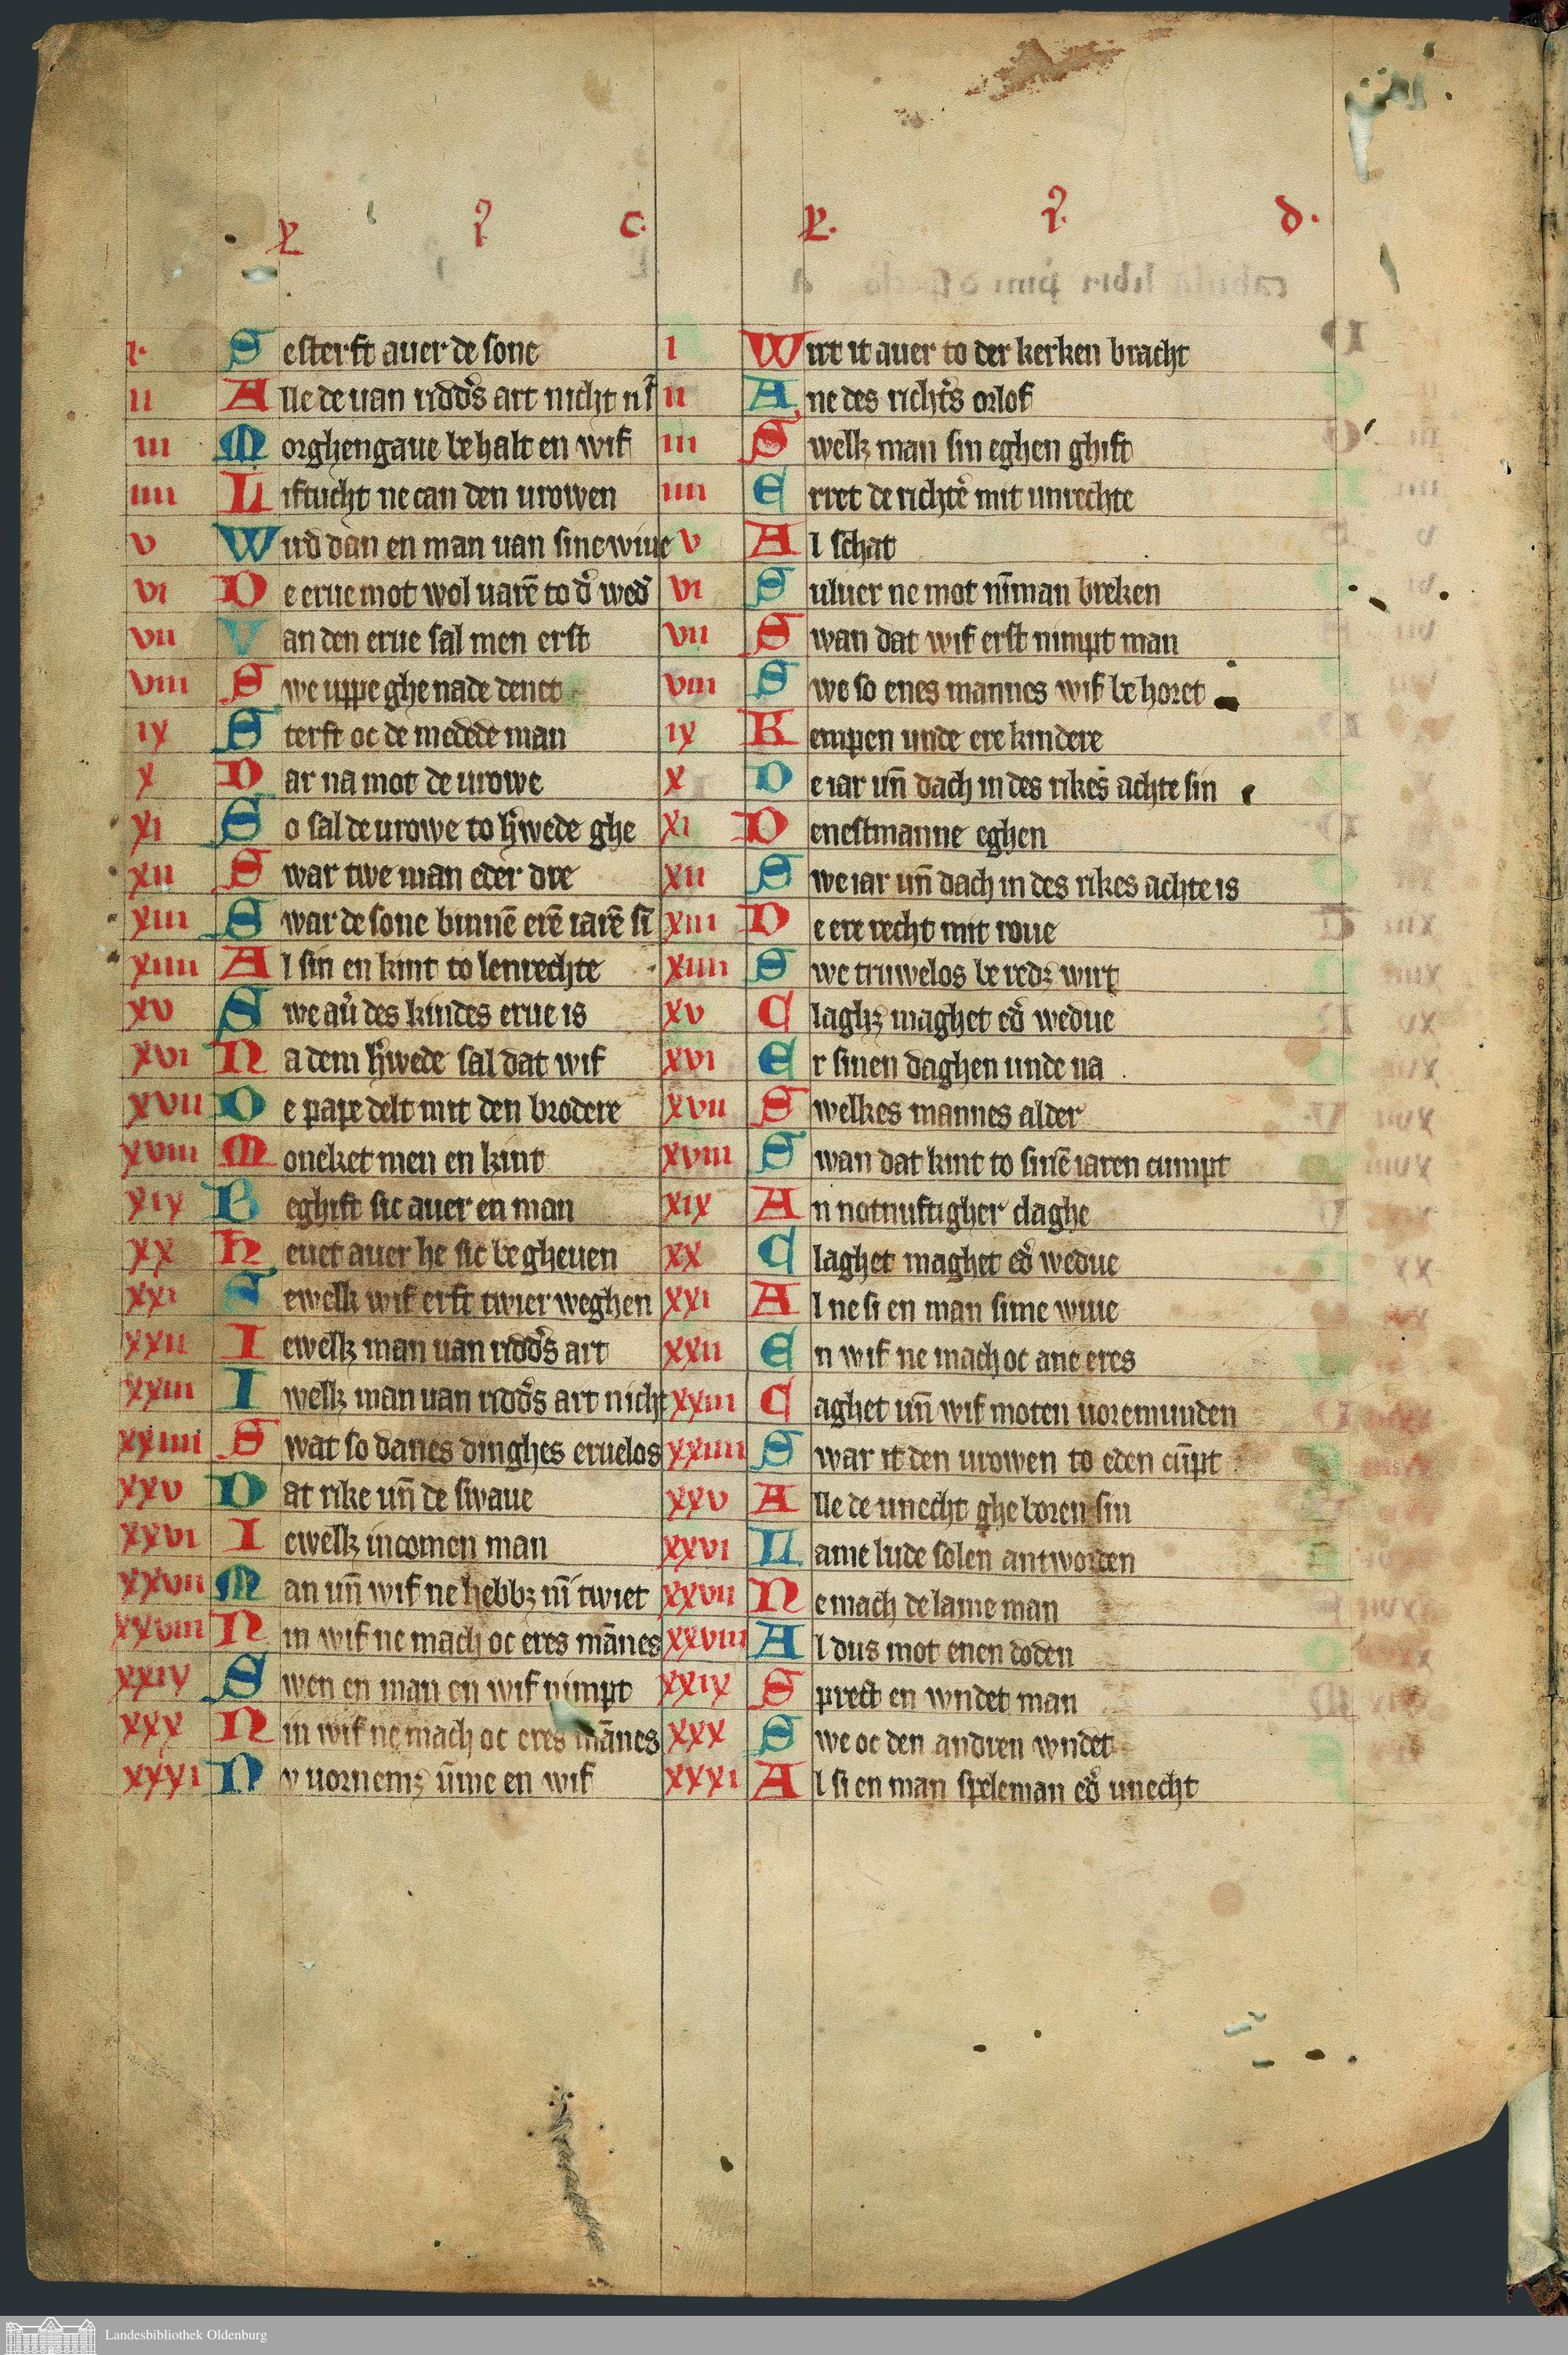 L. I. c.
i. Sesterft auer de sone
ii Alle de uan ridd's art nicht ni
iii Morghengaue behalt en wif
iiii Liftucht ne can den urowen
v Wud dan en man uan sine wiue
vi De erue mot wol uarē to d' wed'
vii Van den erue sal men erst
viii Swe uppe ghenade denet
ix Sterft oc de medede man
x Dar na mot de urowe
xi So sal de urowe to h'wede ghe
xii Swar twe man eder dre
xiii Swar de sone binnē erē iarē sī
xiiii Al sin en kint to lenrechte
xv Swe au' des kindes erue is
xvi Na dem h'wede sal dat wif
xvii De pape delt mit den brodere
xviii Moneket men en kint
xix Beghift sic auer en man
xx Heuet auer he sic begheuen
xxi Sewelk wif erft twier weghen
xxii Iewelk man uan ridd's art
xxiii Iwelk man uan ridd's art nicht
xxiiii Swat so danes dinghes eruelos
xxv Dat rike un̄ de swaue
xxvi Iewelk incomen man
xxvii Man un̄ wif ne hebbꝫ nī twiet
xxviii Nin wif ne mach oc eres mānes
xxix Swen en man en wif nimpt
xxx Nin wif ne mach oc eres mānes
xxxi Nv uornemꝫ ūme en wif
L. I. d.
i Wirt it auer to der kerken bracht
ii Ane des richt's orlof
iii Swelk man sin eghen ghift
iiii Erret de richt'e mit unrechte
v Al schat
vi Suluer ne mot nīman breken
vii Swan dat wif erst nimpt man
viii Swe so enes mannes wif behoret
ix Kempen unde ere kindere
x De iar un̄ dach in des rikes achte sin
xi Denestmanne eghen
xii Swe iar un̄ dach in des rikes achte is
xiii De ere recht mit roue
xiiii Swe truwelos beredꝫ wirt
xv Claghꝫ maghet ed' wedue
xvi Er sinen daghen unde na
xvii Swelkes mannes alder
xviii Swan dat kint to sinē iaren cumpt
xix An notnuftigher claghe
xx Claghet maghet ed' wedue
xxi Al ne si en man sime wiue
xxii En wif ne mach oc ane eres
xxiii Caghet un̄ wif moten uoremunden
xxiiii Swar it den urowen to eden cūpt
xxv Alle de unecht gheboren sin
xxvi Lame lude solen antworden
xxvii Ne mach de lame man
xxviii Al dus mot enen doden
xxix Sprect en wndet man
xxx Swe oc den andren wndet
xxxi Al si en man speleman ed' unecht
Landesbibliothek Oldenburg